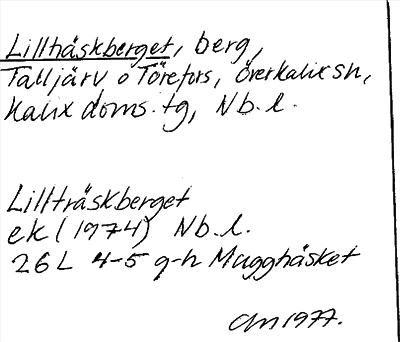 Lillträskberget, berg,
Talljärv o Törefors, Överkalix sn,
Kalix doms. tg, Nb. l.
Lillträskberget
ek (1974) Nb. l.
26 L 4-5 g-h Muggträsket
1977.